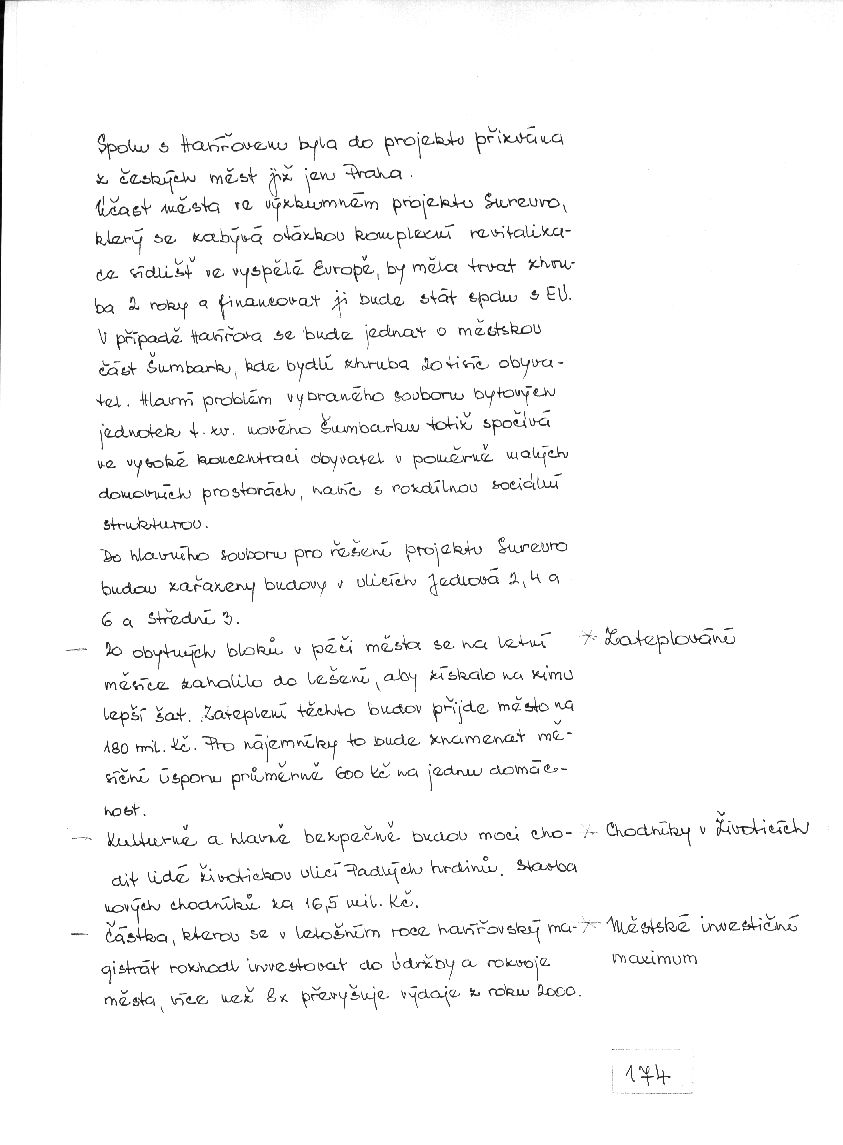 Spolu s Havířovem byla do projektu přizvána
z českých měst již jen Praha.
Účast města ve výzkumném projektu Surevro,
který se zabývá otázkou komplexní revitaliza-
ce sídlišť ve vyspělé Evropě, by měla trvat zhru-
ba 2 roky a financovat ji bude stát spolu s EU.
V případě Havířova se bude jednat o městskou
část Šumbark, kde bydlí zhruba 20 tisíc obyva-
tel. Hlavní problém vybraného souboru bytových
jednotek t. zv. nového Šumbarku totiž spočívá
ve vysoké koncentraci obyvatel v poměrně malých
domovních prostorách, navíc s rozdílnou sociální
strukturou.
Do hlavního souboru pro řešení projektu Surevro
budou zařazeny budovy v ulicích Jedlová 2, 4 a
6 a Střední 3.
— 20 obytných bloků v péči města se na letní * Zateplování
měsíce zahalilo do lešení, aby získalo na zimu
lepší šat. Zateplení těchto budov přijde město na
180 mil. Kč. Pro nájemníky to bude znamenat mě-
síční úsporu průměrně 600 Kč na jednu domác-
nost.
— Kulturně a hlavně bezpečně budou moci cho- * Chodníky v Životicích
dit lidé životickou ulicí Padlých hrdinů. Stavba
nových chodníků za 16,5 mil. Kč.
— Částka, kterou se v letošním roce havířovský ma- * Městské investiční
gistrát rozhodl investovat do údržby a rozvoje maximum
města, více než 2x převyšuje výdaje z roku 2000.
174